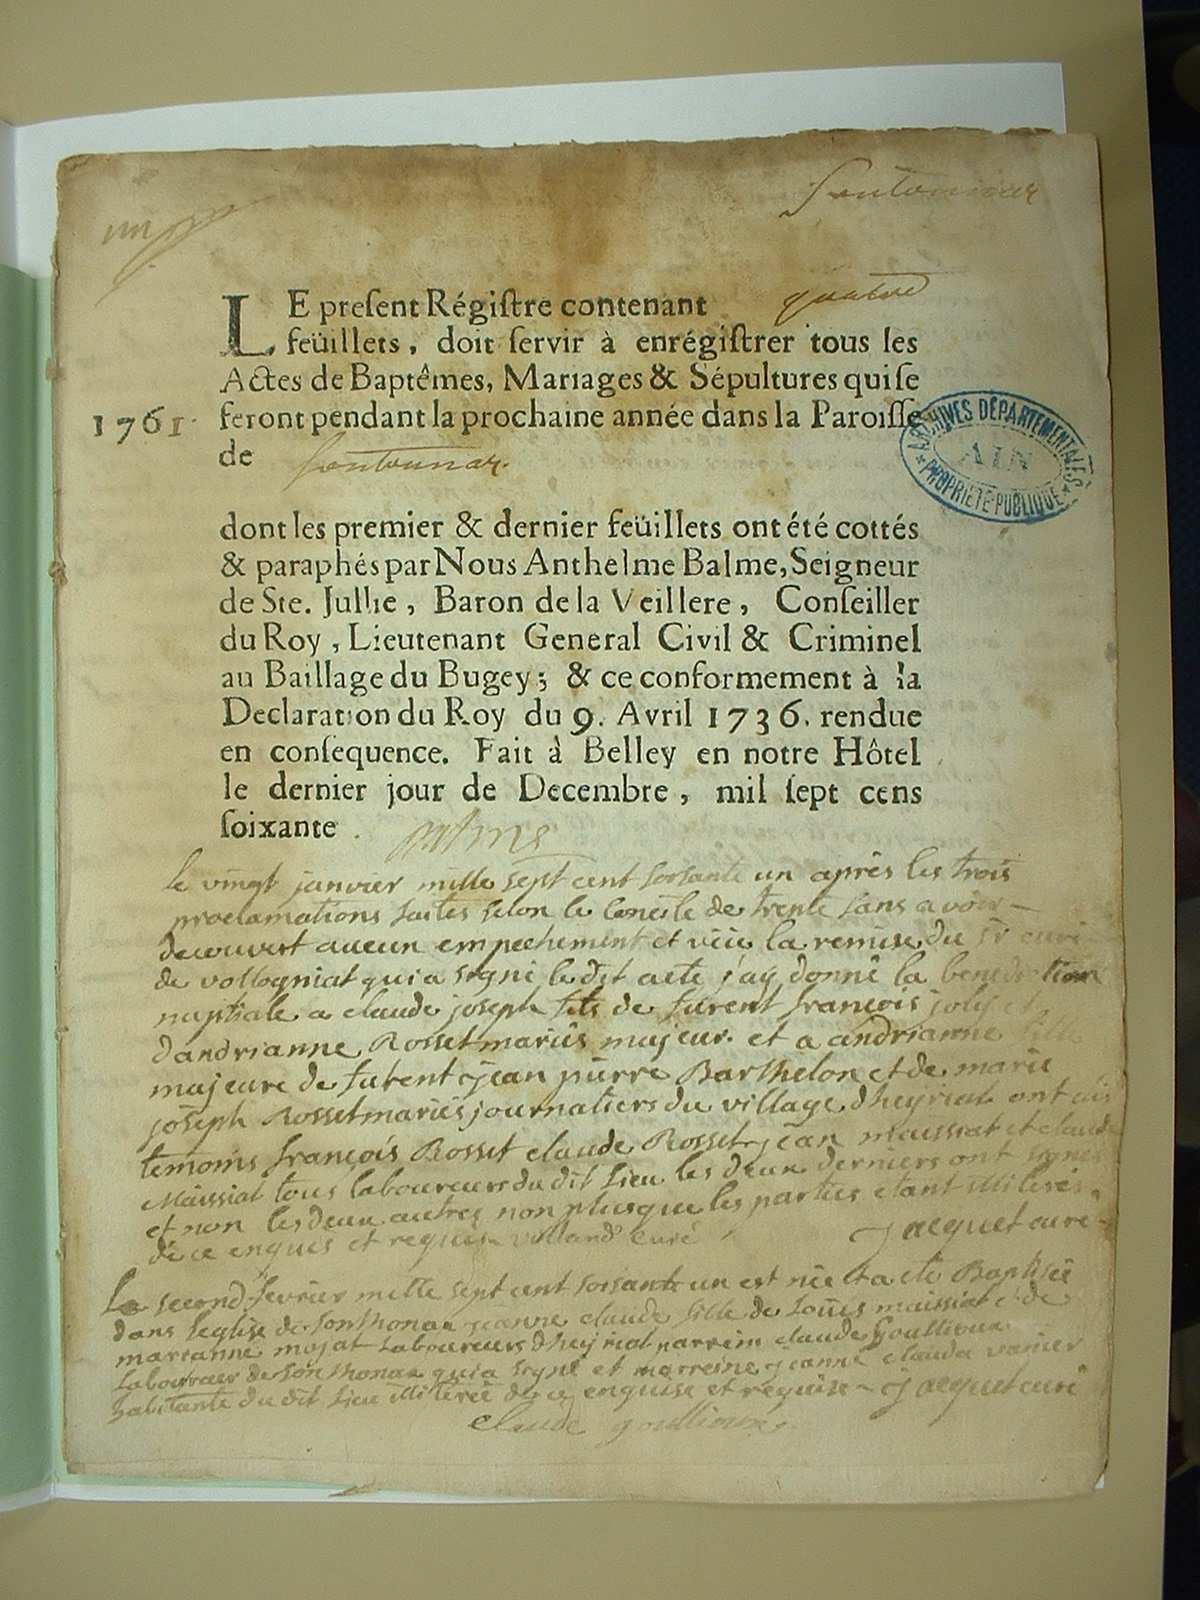 un
Sontonnax
LE present Régistre contenant quatre
feüillets, doit servir à enrégistrer tous les
Actes de Baptêmes, Mariages & Sépultures qui se
1761. feront pendant la prochaine année dans la Paroisse
de Sontonnax.
ARCHIVES DÉPARTEMENTALES
AIN
PROPRIÉTÉ PUBLIQUE
dont les premier & dernier feüillets ont été cottés
& paraphés par Nous Anthelme Balme, Seigneur
de Ste. Jullie, Baron de la Veillere, Conseiller
du Roy, Lieutenant General Civil & Criminel
au Baillage du Bugey; & ce conformement à la
Declaration du Roy du 9. Avril 1736. rendue
en consequence. Fait à Belley en notre Hôtel
le dernier jour de Decembre, mil sept cens
soixante.
le vingt janvier mille sept cent soisante un après les trois
proclamations faites selon le concile de trente sans avoir
decouvert aucun empechement et veüe la remise du sr curé
de vollogniat qui a signé le dit acte j'ay donné la benediction
nuptiale a claude joseph fils de furent françois joly et
dandrianne Rosset mariés majeur. et a andrianne fille
majeure de furent jean pierre Barthelon et de marie
joseph Rosset mariés journaliers du village dheyriat ont été
temoins françois Rosset claude Rosset jean maissiat et claude
Maissiat tous laboureurs du dit lieu les deux derniers ont signés
et non les deux autres non plus que les parties etant illiterés.
de ce enquis et requis volland curé Jacquet curé
Le second fevrier mille sept cent soisante un est née et a eté Baptisée
dans leglise de sonthonax jeanne claude fille de Loüis maissiat et de
marianne mojat Laboureurs dheyriat parrein claude Goullioux
Laboureur de sonthonax qui a signé et marreine jeanne claude vanier
habitante du dit lieu illiterée de ce enquise et requise Jacquet curé
claude goullioux